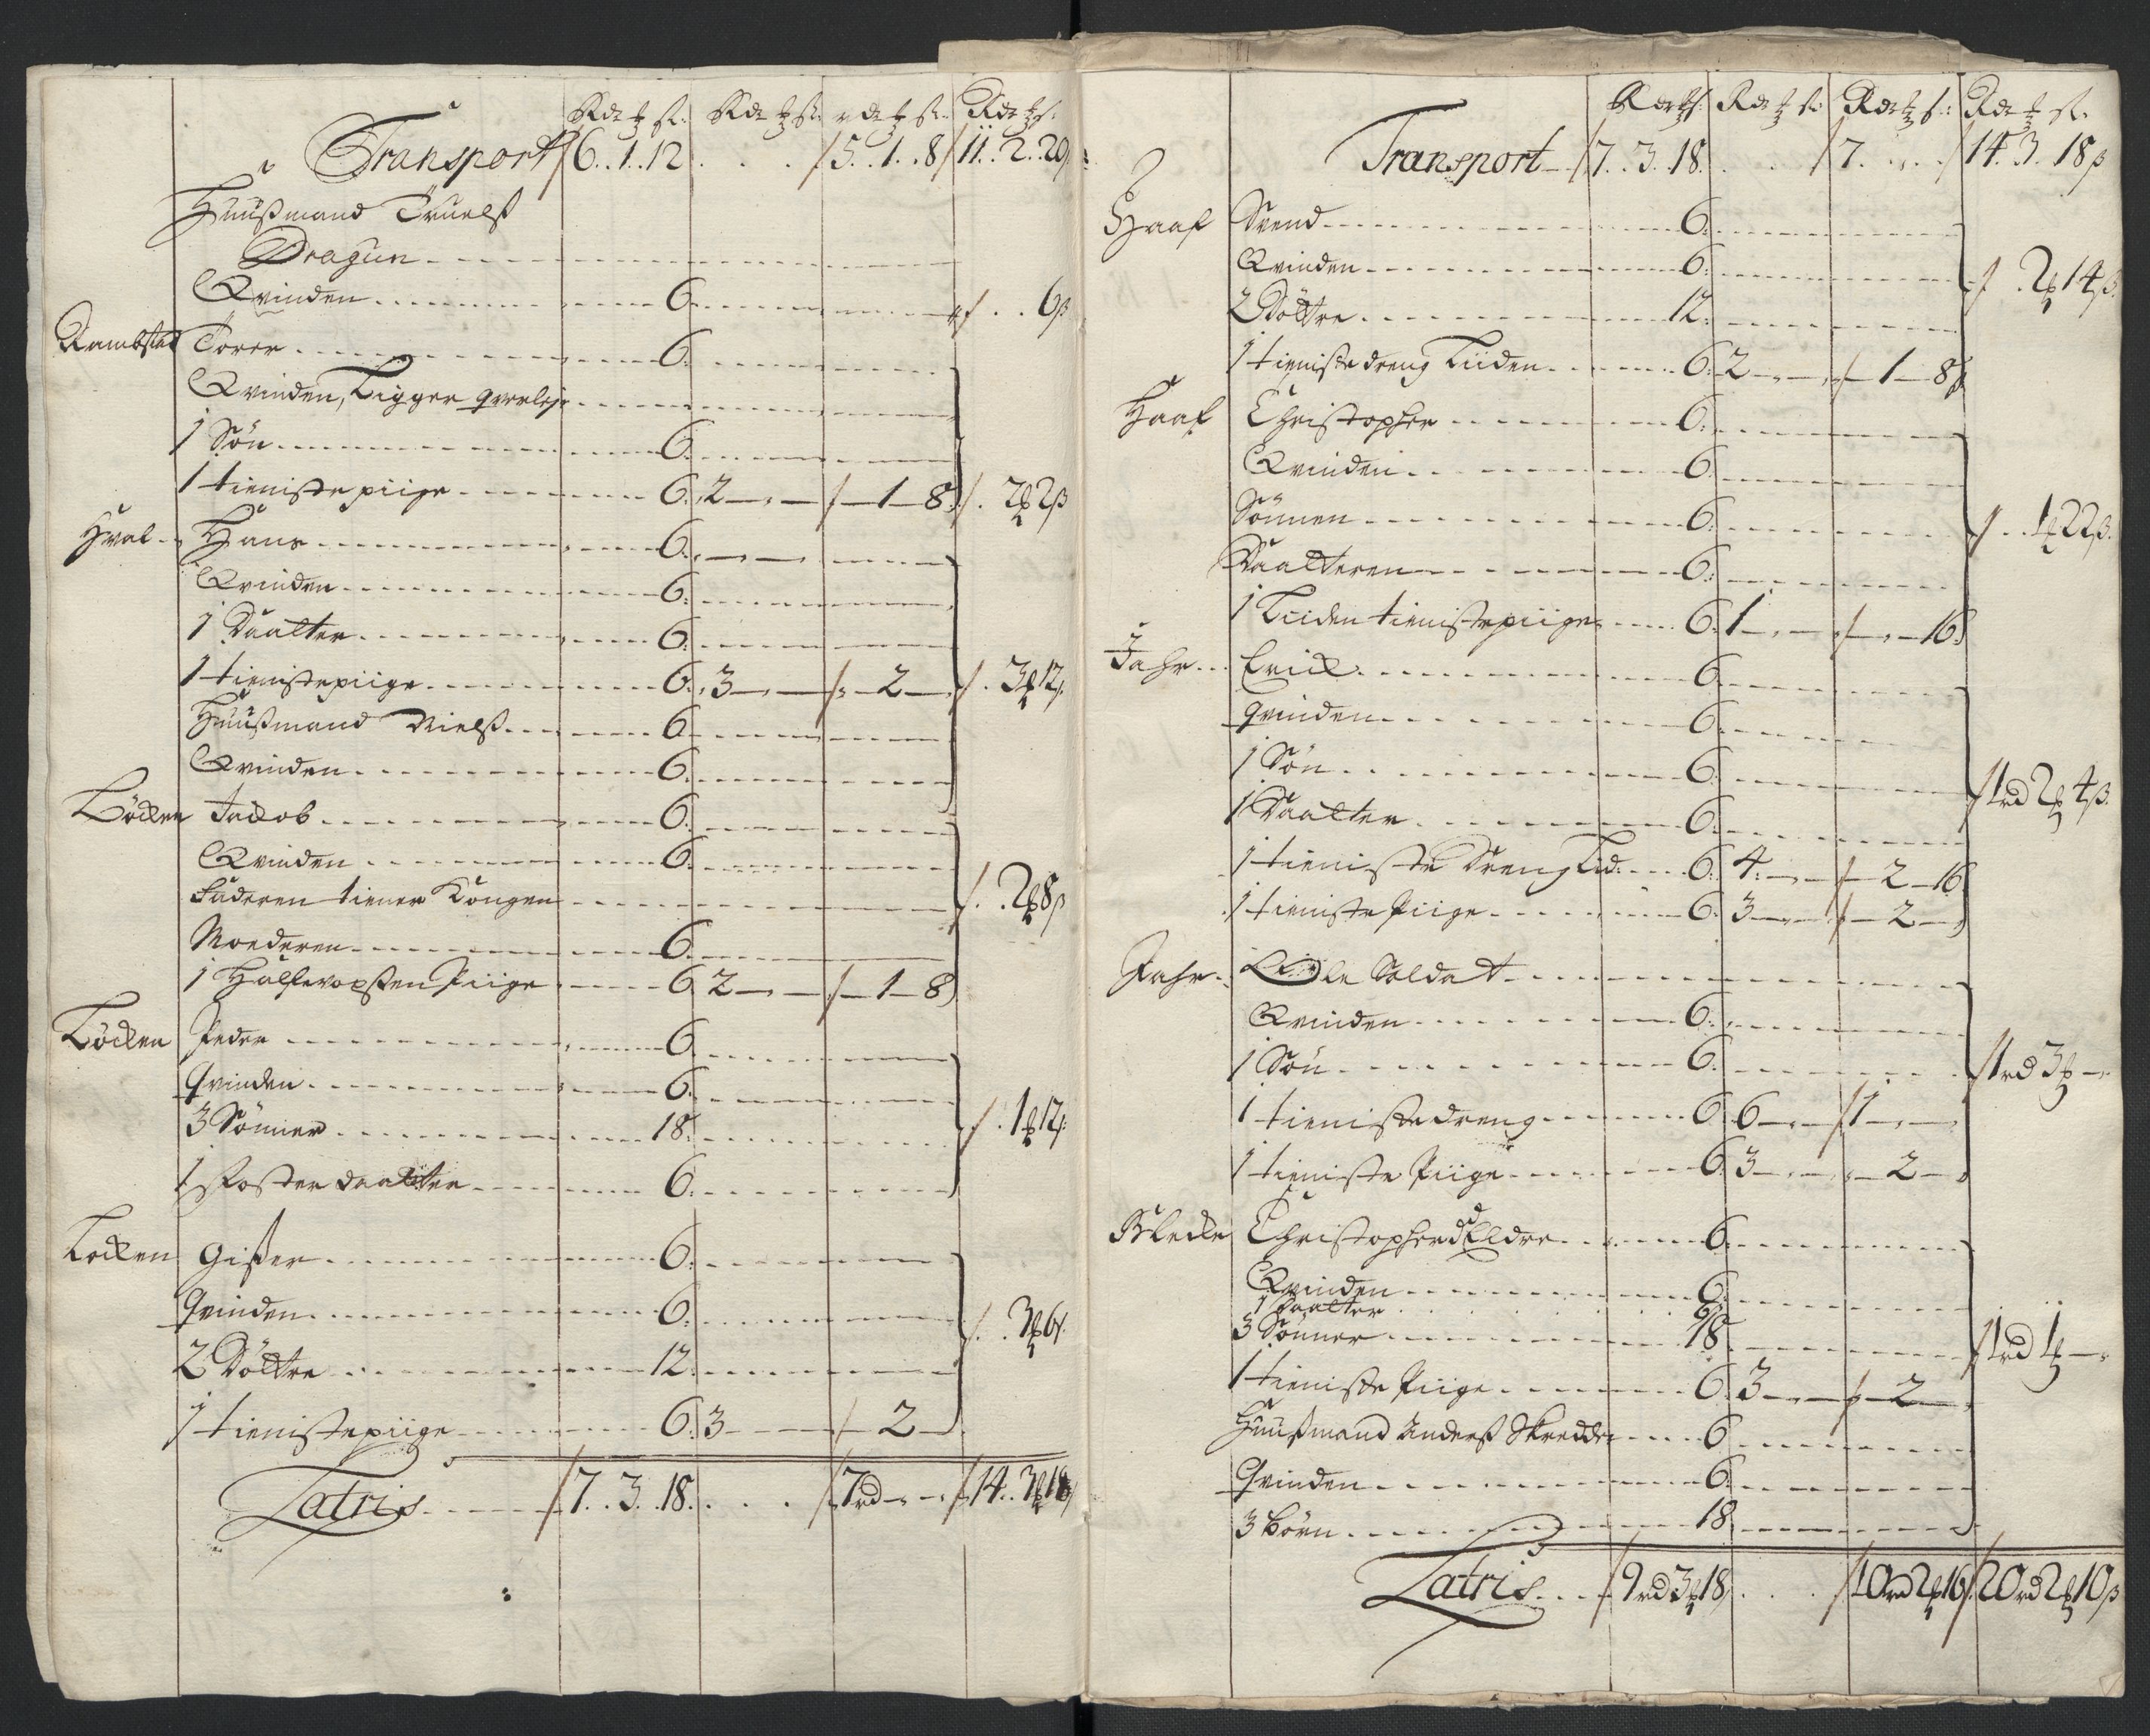 Rdr ß Rdr ß rdr ß Rdr ß
Transport 6..1..12 . . . 5..1..8 11..2..20
Huußmand Truelß
Dragun
Qvinden 6 6ß
Rambsted Torer 6
Qvinden, Ligger
1 Søn 6
1 tieniste piige 6. 2 1 8 2 2ß
Hval Hans 6
Qvinden 6
1 Daatter 6
1 tieniste piige 6. 3 2 3 12ß
Huußmand Nielß 6
Qvinden 6
Løcken Jacob 6
Qvinden 6
Faderen tiener Kongen 2 8ß
Moederen 6
1 Halfvoxsten Piige 6 2 1 8
Løcken Peder 6
Qvinden 6
3 Sønner 18 1 12ß
1 Foster daatter 6
Løcken Gißer 6
Qvinden 6 3 6ß
2 Døttre 12
1 tieniste piige 6 3 2
Latris 7..3..18 . . . 7rd 14..3 18
Rdr ß Rdr ß Rdr ß Rdr ß
Transport 7..3..18 . . 7 14.3.18ß
Haaf Svend 6
Qvinden 6 2 14ß
2 Døttre 12
1 tieniste dreng Liiden 6 2 1 8ß
Haaf Christopher 6
Qvinden 6
Sønnen 6 1 22ß
Daatteren 6
1 Liiden tieniste piige 6 1 16
Jahr Erick 6
qvinden 6
1 Søn 6 1rd 2 4ß
1 Daatter 6
1 tieniste Dreng Lid 6 4 2 16
1 tieniste Piige 6 3 2
Jahr Ole Soldat
Qvinden 6
1 Søn 6 1rd 3
1 tieniste dreng 6 6 1
1 tieniste Piige 6 3 2
Blecke Christopher d Eldre 6
Qvinden 6
1 Daatter 6
3 Sønner 18 1rd 1
1 tieniste Piige 6 3 2
Huußmand Anderß Skredder 6
Qvinden 6
3 Børn 18
Latris 9rd 3 18 . . . 10rd 2 16 20rd 2 10ß